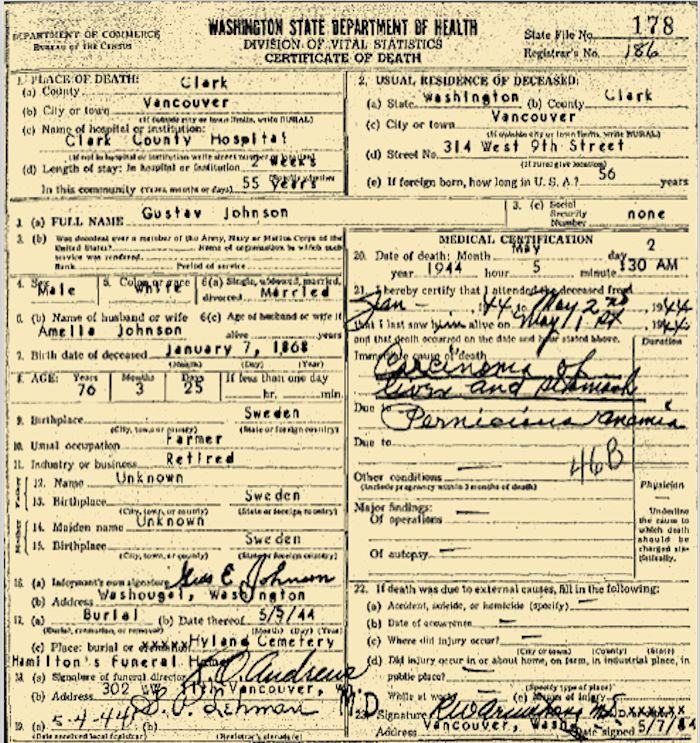 DEPARTMENT OF COMMERCE
BUREAU OF THE CENSUS
WASHINGTON STATE DEPARTMENT OF HEALTH
DIVISION OF VITAL STATISTICS
CERTIFICATE OF DEATH
State File No. 178
Registrar's No. 186
1. PLACE OF DEATH:
(a) County Clark
(b) City or town Vancouver
(If outside city or town limits, write RURAL)
(c) Name of hospital or institution:
Clark County Hospital
(If not in hospital or institution write street number or location)
(d) Length of stay: In hospital or institution 2 weeks
(Specify whether
In this community (years, months or days) 55 years
2. USUAL RESIDENCE OF DECEASED:
(a) State Washington (b) County Clark
(c) City or town Vancouver
(If outside city or town limits, write RURAL)
(d) Street No. 314 West 9th Street
(If rural give location)
(e) If foreign born, how long in U. S. A.? 56 years
3. (a) FULL NAME Gustav Johnson
3. (b) Was decedent ever a member of the Army, Navy or Marine Corps of the
United States? Name of organization in which such
service was rendered.
Rank Period of service
3. (c) Social Security Number none
4. Sex Male 5. Color or race White 6(a) Single, widowed, married, divorced Married
6. (b) Name of husband or wife Amelia Johnson 6(c) Age of husband or wife if alive years
7. Birth date of deceased January 7, 1868
(Month) (Day) (Year)
8. AGE: Years 76 Months 3 Days 25 If less than one day hr. min.
9. Birthplace Sweden
(City, town or county) (State or foreign country)
10. Usual occupation Farmer
11. Industry or business Retired
Father
12. Name Unknown
13. Birthplace Sweden
(City, town, or county) (State or foreign country)
Mother
14. Maiden name Unknown
15. Birthplace Sweden
(City, town, or county) (State or foreign country)
16. (a) Informant's own signature Gus E Johnson
(b) Address Washougal, Washington
17. (a) Burial (b) Date thereof 5/5/44
(Burial, cremation, or removal) (Month) (Day) (Year)
(c) Place: burial or cremation xxxxx Hyland Cemetery
Hamilton's Funeral Home
18. (a) Signature of funeral director Andrews
(b) Address 302 W 11th Vancouver, W
19. (a) 5-4-44 Lehman M.D
(Date received local registrar) (Registrar's signature)
MEDICAL CERTIFICATION
20. Date of death: Month May day 2
year 1944 hour 5 minute 30 AM
21. I hereby certify that I attended the deceased from
Jan - 1944 to May 2nd 1944
that I last saw him alive on May 1st 1944
and that death occurred on the date and hour stated above. Duration
Immediate cause of death Carcinoma of
liver and stomach
Due to Pernicious anemia
Due to
46B
Other conditions
(Include pregnancy within 3 months of death)
Major findings:
Of operations
Of autopsy
Physician
Underline the cause to which death should be charged statistically.
22. If death was due to external causes, fill in the following:
(a) Accident, suicide, or homicide (specify)
(b) Date of occurrence
(c) Where did injury occur?
(City or town) (County) (State)
(d) Did injury occur in or about home, on farm, in industrial place, in
public place?
(Specify type of place)
While at work (e) Means of injury
23. Signature RW Armstrong M.D. xxxxxx
Address Vancouver, Wash Date signed 5/7/44